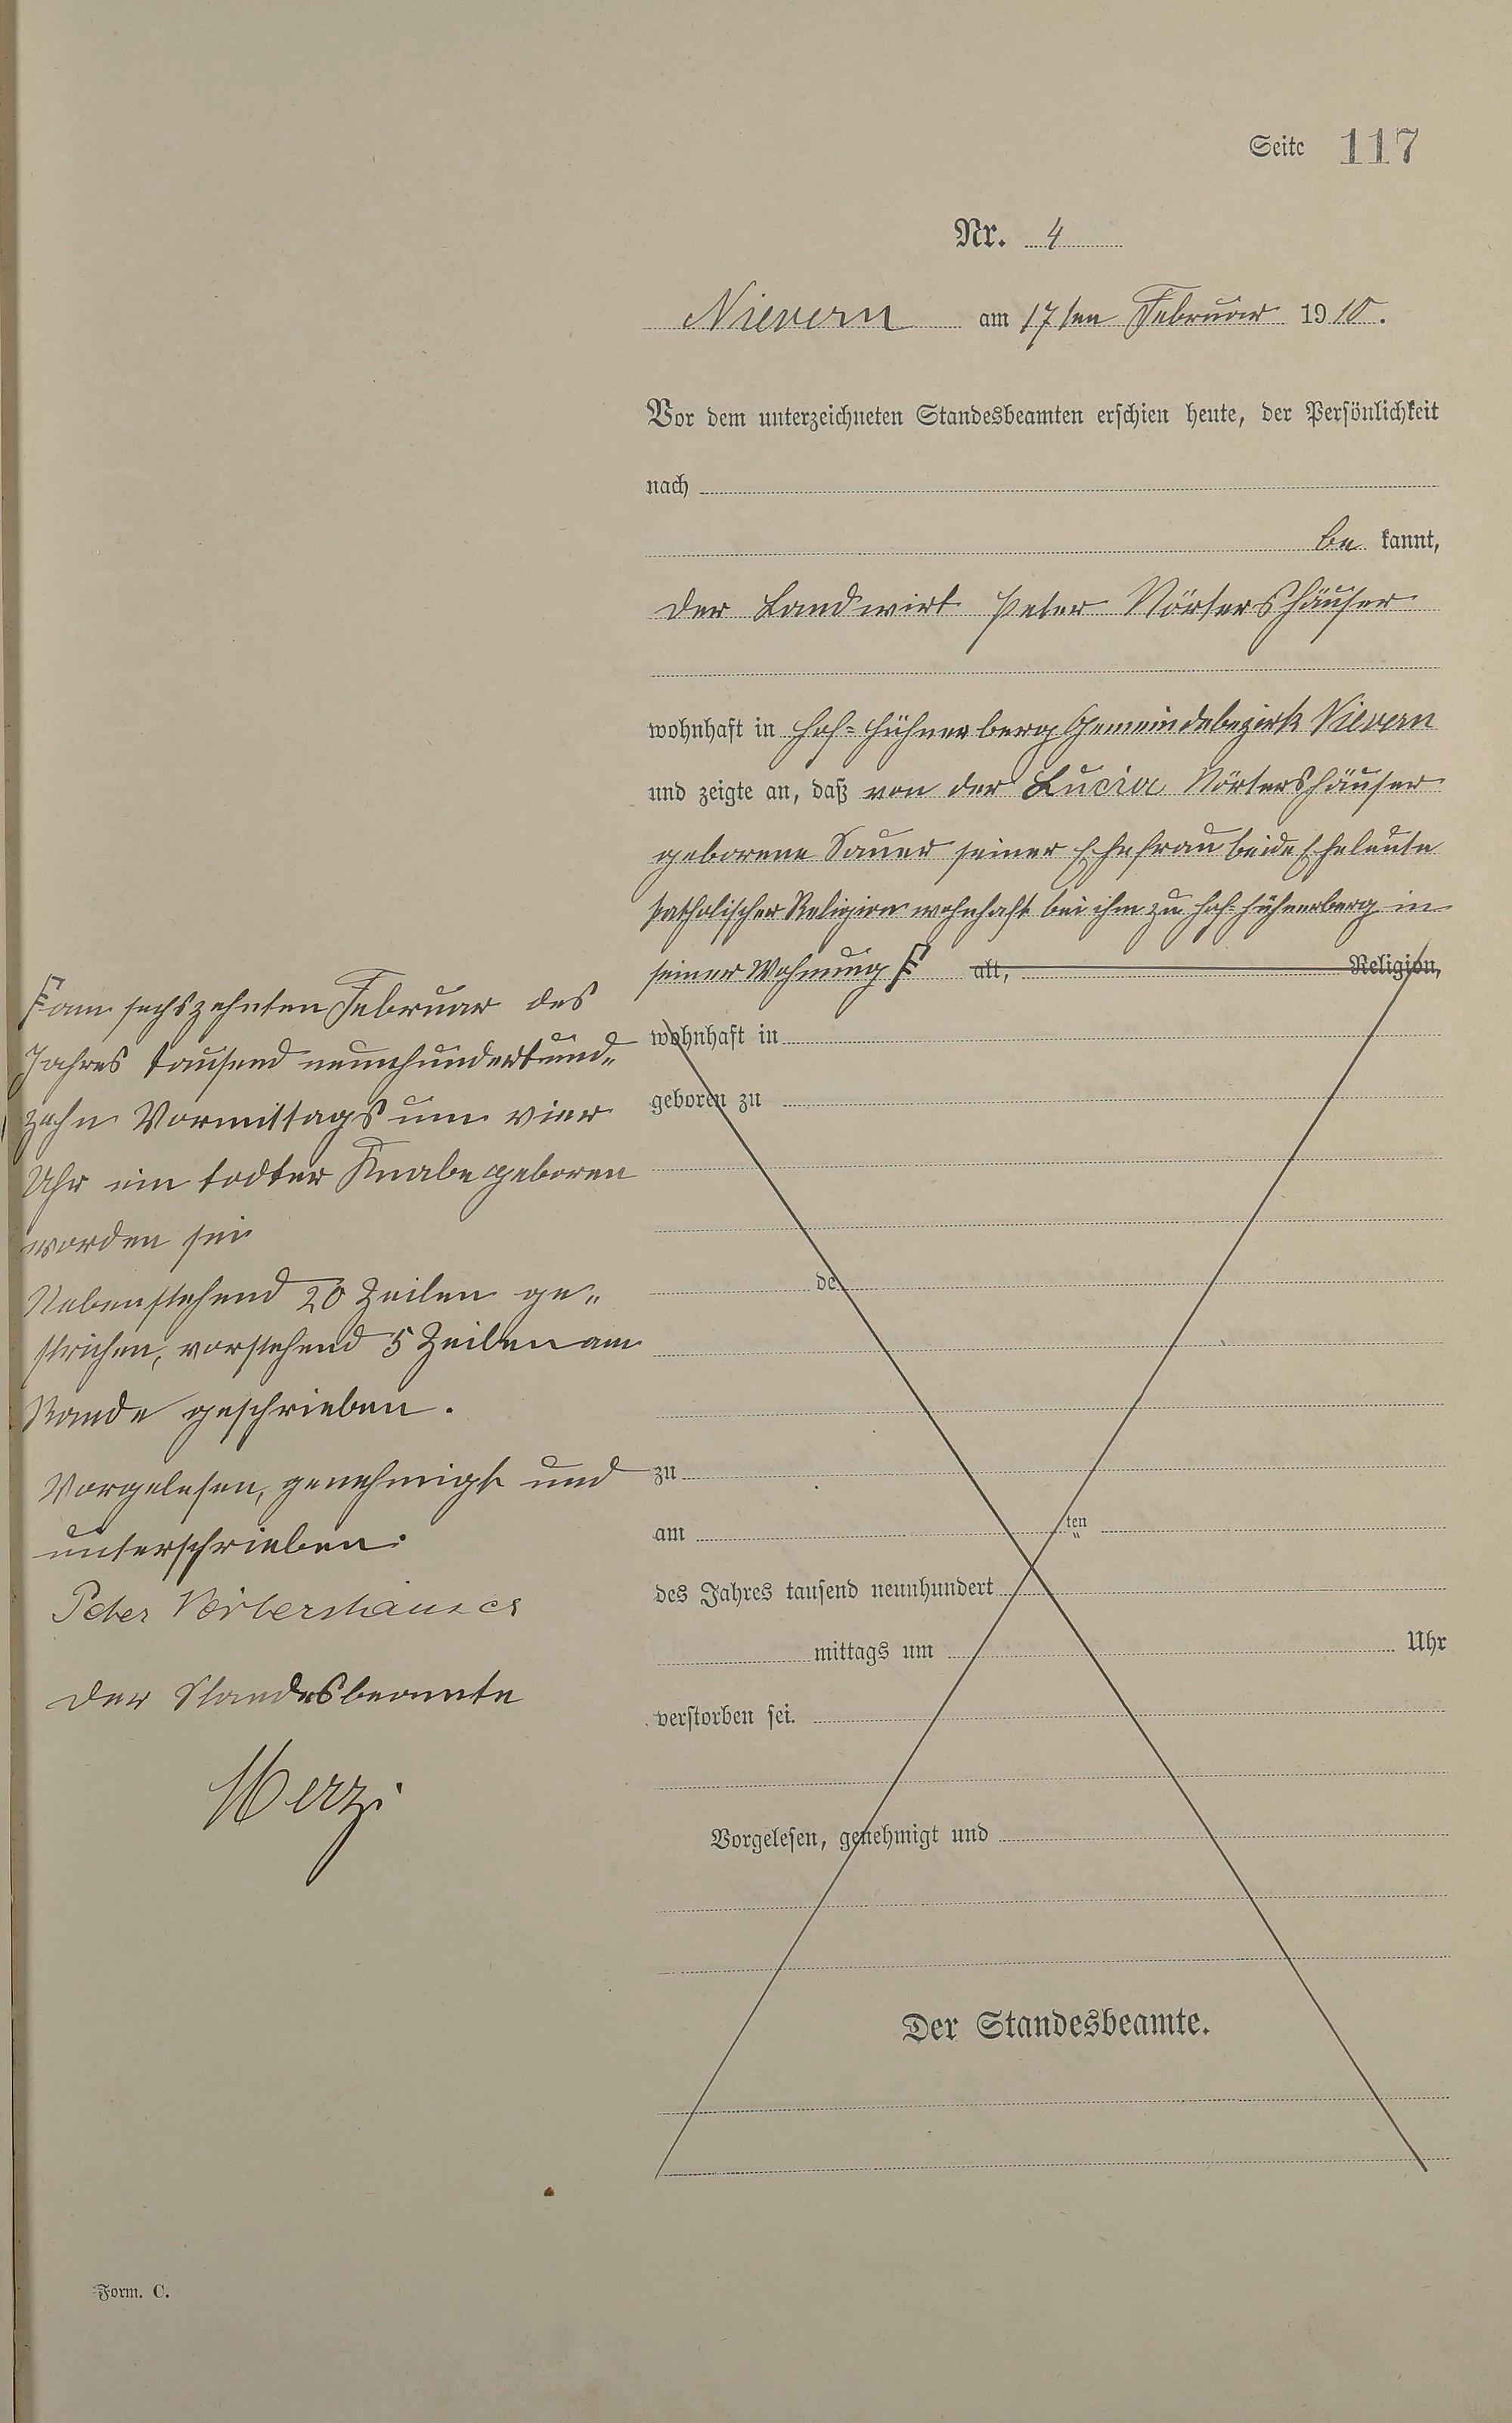 Seite 117
Nr. 4
Nievern am 17ten Februar 1910.
Vor dem unterzeichneten Standesbeamten erschien heute, der Persönlichkeit
nach
be kannt,
der Landwirt Peter Nörtershäuser
wohnhaft in Hof-Hühnerberg Gemeindebezirk Nievern
und zeigte an, daß von der Lucia Nörtershäuser
geborene Sauer seiner Ehefrau beide Eheleute
katholischer Religion wohnhaft bei ihm zu Hof-Hühnerberg in
seiner Wohnung alt, Religion,
wohnhaft in
geboren zu
de
zu
am ten
des Jahres tausend neunhundert
mittags um Uhr
verstorben sei.
Vorgelesen, genehmigt und
Der Standesbeamte.
am sechszehnten Februar des
Jahres tausend neunhundertund„
zehn Vormittags um vier
Uhr ein todter Knabe geboren
worden sei
Nebenstehend 20 Zeilen ge„
strichen, vorstehend 5 Zeilen am
Rande geschrieben.
Vorgelesen, genehmigt und
unterschrieben:
Peter Nörtershäuser
Der Standesbeamte
Form. C.